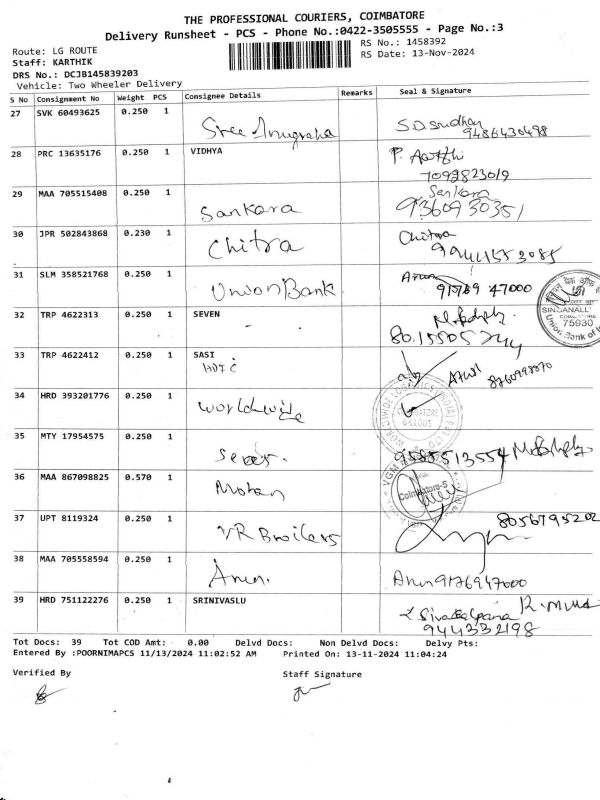 THE PROFESSIONAL COURIERS, COIMBATORE
Delivery Runsheet - PCS - Phone No.:0422-3505555 - Page No.:3
Route: LG ROUTE RS No.: 1458392
Staff: KARTHIK RS Date: 13-Nov-2024
DRS No.: DCJB145839203
Vehicle: Two Wheeler Delivery
S No Consignment No Weight PCS Consignee Details Remarks Seal & Signature
27 SVK 60493625 0.250 1 Sree Anugraha S.D.Sridhan
9486430498
28 PRC 13635176 0.250 1 VIDHYA P. Aarthi
7092823019
29 MAA 705515408 0.250 1 Sankara Sankara
9360930351
30 JPR 502843868 0.230 1 Chitra Chitra
9944453085
31 SLM 358521768 0.250 1 Union Bank Arun
91769 47000
SINGANALL
COIMBATORE
75930
Union Bank of
32 TRP 4622313 0.250 1 SEVEN
33 TRP 4622412 0.250 1 SASI
HDFC
34 HRD 393201776 0.250 1 worldwide
COIMBATORE
35 MTY 17954575 0.250 1 9585513554
36 MAA 867098825 0.570 1 Mohan
VGM
Coimbatore-5
37 UPT 8119324 0.250 1 VR Broilers 8056795202
38 MAA 705558594 0.250 1 Arun. Arun 9176947000
39 HRD 751122276 0.250 1 SRINIVASLU Sivakalpana
944332198
Tot Docs: 39 Tot COD Amt: 0.00 Delvd Docs: Non Delvd Docs: Delvy Pts:
Entered By :POORNIMAPCS 11/13/2024 11:02:52 AM Printed On: 13-11-2024 11:04:24
Verified By Staff Signature